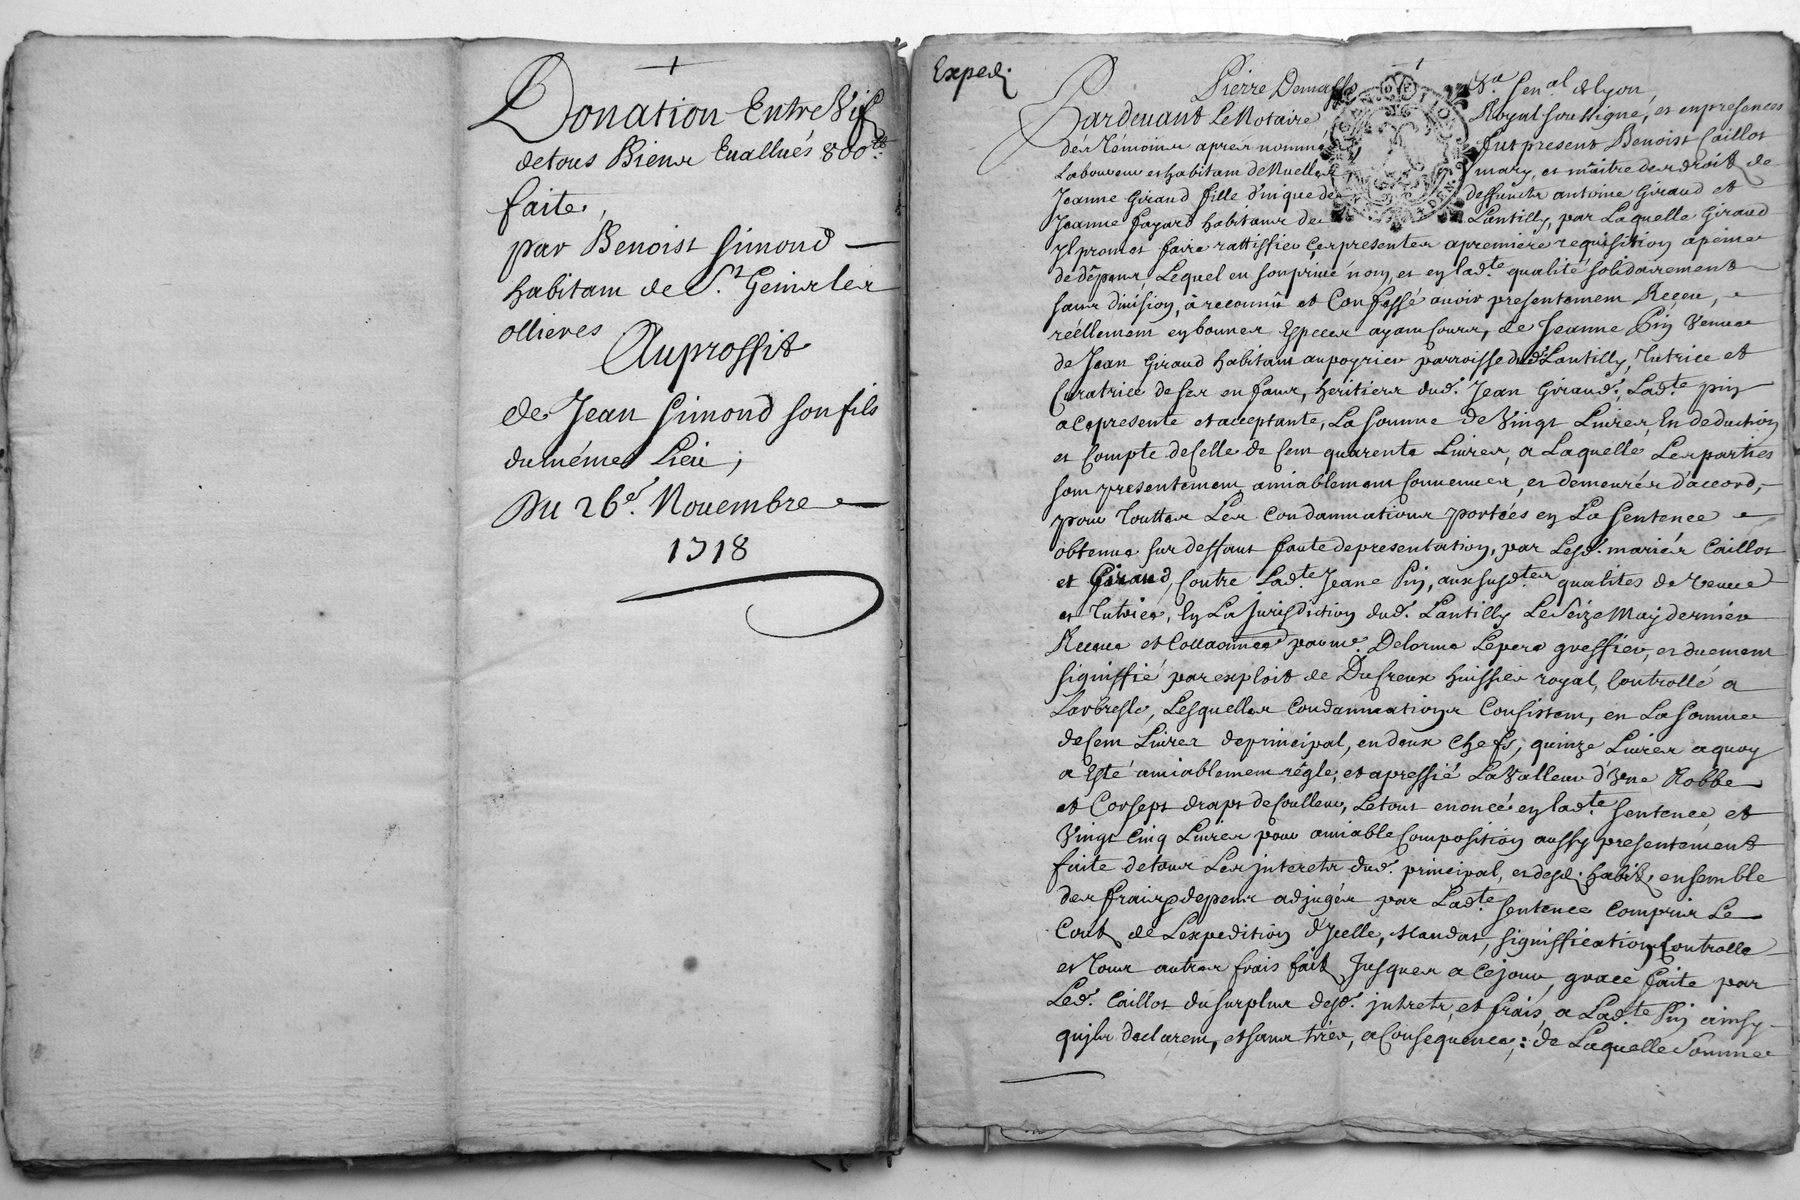 Donation Entre Vifs
de tous Biens Euallués 800ᵗᵗ
faite,
par Benoist Simond
habitant de Sᵗ Genis les
ollieres
Au proffit
de Jean Simond son fils
du méme Lieu ;
Du 26ᵉ. Nouembre
1718
Exped.
Pierre Demasso gᵃ. Genᵃˡ de lyon
Pardeuant Le Notaire Royal sousSigné, et en presences
des témoins apres nommé fut present Benoist Caillot
Laboureur et habitant de Nuelles mary, et mâitre des droits de
Jeanne Giraud fille d'inique de deffuncts antoine Giraud et
Jeanne fayard habitans de Lantilly, par Laquelle Giraud
Il promet faire rattiffier Ces presentes a premiere requisition a peine
de dêpens, Lequel en son priué nom, et en ladᵗᵉ qualité solidairement
sans diuision, à reconnû et Confessé auoir presentement Receu,
réellement en bonnes Especes ayant Cours, de Jeanne Pin Veuue
de Jean Giraud habitant au poyrier parroisse dudᵗ Lantilly, Tutrice et
Curatrice de ses enfans, heritiers dudᵗ. Jean Giraud, Ladᵗᵉ pin
a Ce presente et acceptante, La somme de Vingt Liures, En deduction
et Compte de Celle de Cent quarente Liures, a Laquelle Les parties
sont presentement amiablement Conuenues, et demeurés d'accord,
pour touttes Les Condamnations portées en La Sentence
obtenue sur deffaut faute de presentation, par Lesdᵗ. mariés Caillot
et Giraud, Contre Ladᵗᵉ Jeane Pin, aux susdᵗᵉˢ qualités de Veuue
et Tutrice, En La Jurisdiction dudᵗ. Lantilly Le Seize May dernier
Receue et Collaonnée par mᵉ. Delorme Lepere greffier, et duement
signiffié par exploit de Dufreux huissier royal, Controllé a
Larbresle, Lesquelles Condamnations Consistent, en La Somme
de Cent Liures de principal, en deux Chefs, quinze Liures a quoy
a Esté amiablement réglé, et apressié La Valleur d'Vne Robbe
et Corseps draps de Coulleur, Le tout enoncé en ladᵗᵉ Sentence, et
Vingt Cinq Liures pour amiable Composition aussy presentement
faite de tous Les Interets dudᵗ. principal, et desdᵗ. habits, ensemble
des frais et depens adjugés par Ladᵗᵉ Sentence Compris Le
Cout de Lexpedition d'Icelle, Mandat, Signiffication, Controlle
et tous autres frais fait Jusques a Ce jour, grace faite par
Ledᵗ. Caillot du surplus desdᵗ. intrets, et frais, a Ladᵗᵉ Pin ainsy
qu'ils declarent, et sans tirer, a Consequence ; de Laquelle Somme